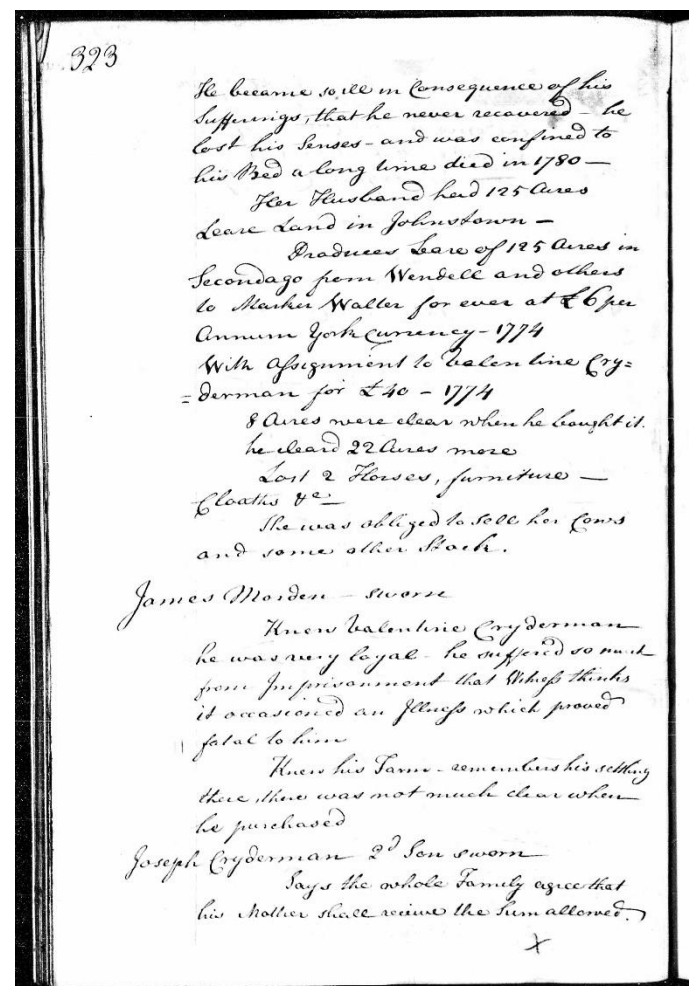 323
He became so ill in Consequence of his
Sufferings, that he never recovered – he
lost his Senses – and was confined to
his Bed a long time died in 1780 –
Her Husband had 125 Acres
Lease Land in Johnstown –
Produces Lease of 125 Acres in
Secondago from Wendell and others
to Walter for ever at £6 per
Annum York Currency – 1774
With Assignment to Valentine Cry=
=derman for £40 – 1774
8 Acres were clear when he bought it.
he cleard 22 Acres more
Lost 2 Horses, furniture –
Cloaths &c
She was obliged to sell her Cows
and some other Stock.
James Morden – sworn
Knew Valentine Cryderman
he was very loyal – he suffered so much
from Imprisonment that Witness thinks
it occasioned an Illness which proved
fatal to him
Knew his Farm – remembers his settling
there, there was not much clear when
he purchased
Joseph Cryderman 2d Son sworn
Says the whole Family agree that
his Mother shall receive the Sum allowed.
X